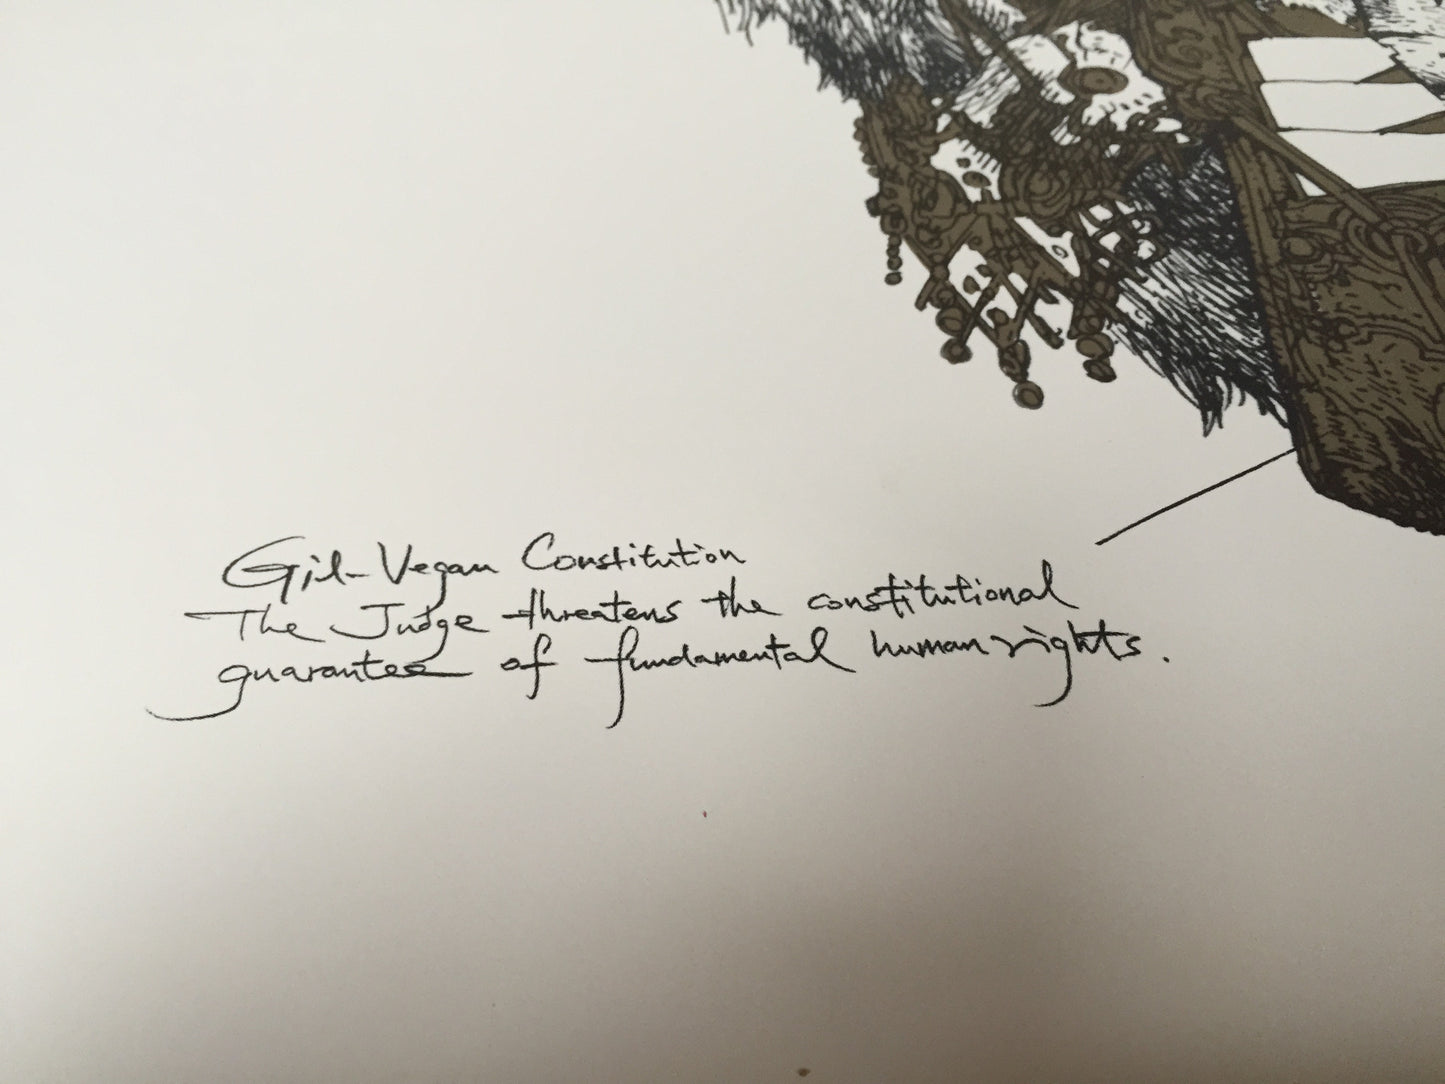 Gil-Vegan Constitution
The Judge threatens the constitutional
guarantee of fundamental human rights.